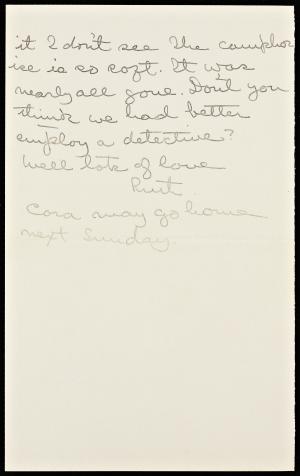 it I don't see the camphor
ice is so soft. It was
nearly all gone. Don't you
think we had better
employ a detective?
Well lots of love
Ruth.
Cora may go home
next Sunday.